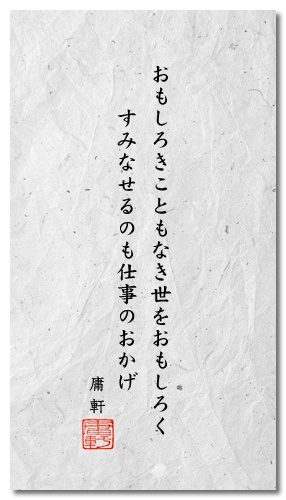 おもしろきこともなき世をおもしろく
すみなせるのも仕事のおかげ
庸軒
庸軒